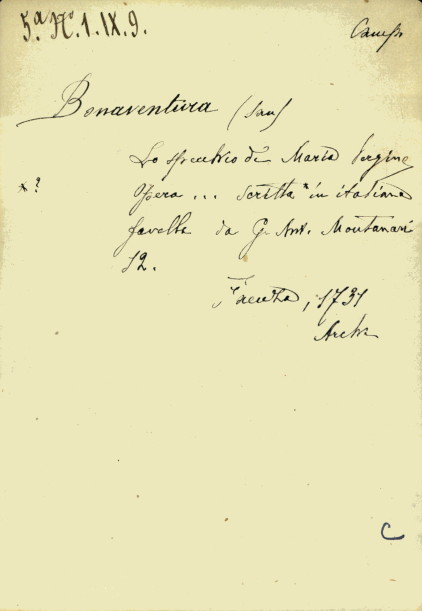 5.ª N.º 1. IX. 9.
Bonaventura (San)
Lo specchio di Maria Vergine
*?
Opera ... scritta in italiana
favella da G. Ant. Montanari
12.
Faenza, 1731
Arch
C